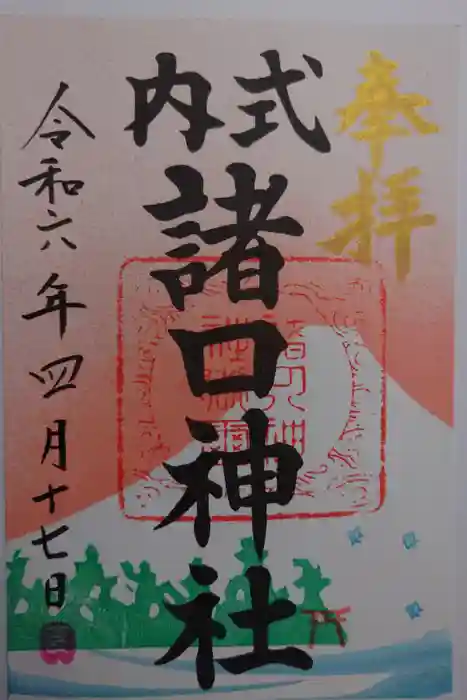 奉拝
式内
諸口神社
令和六年四月十七日